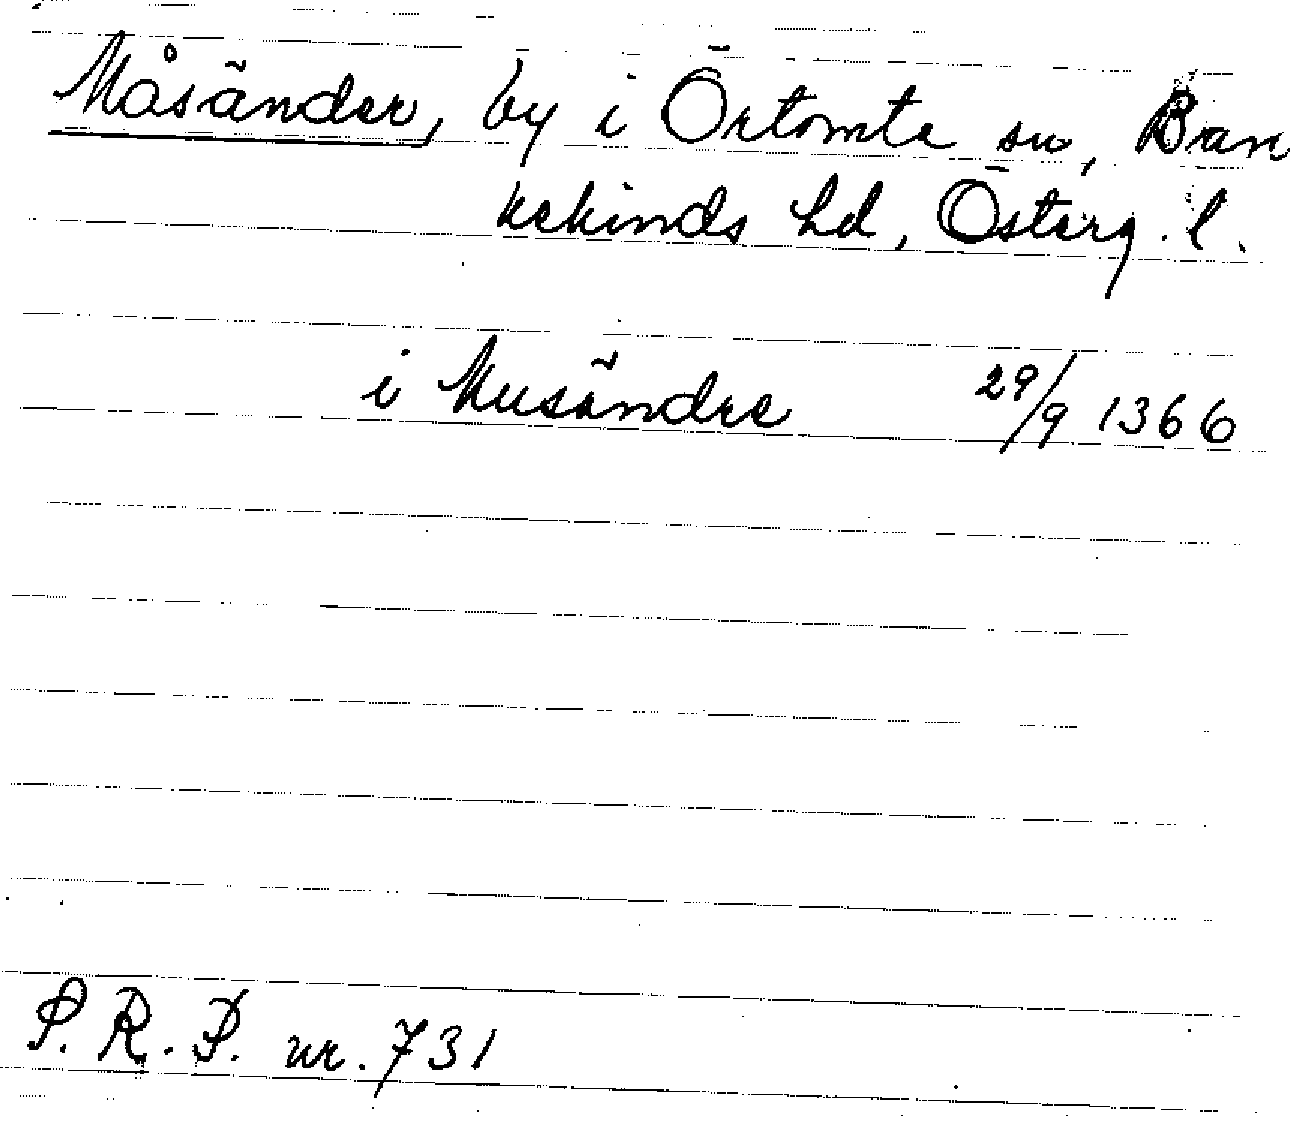 Måsänder, by i Örtomta sn, Ban
kekinds hd, Österg. l.
i Musändre 29/9 1366
S. R. P. nr. 731